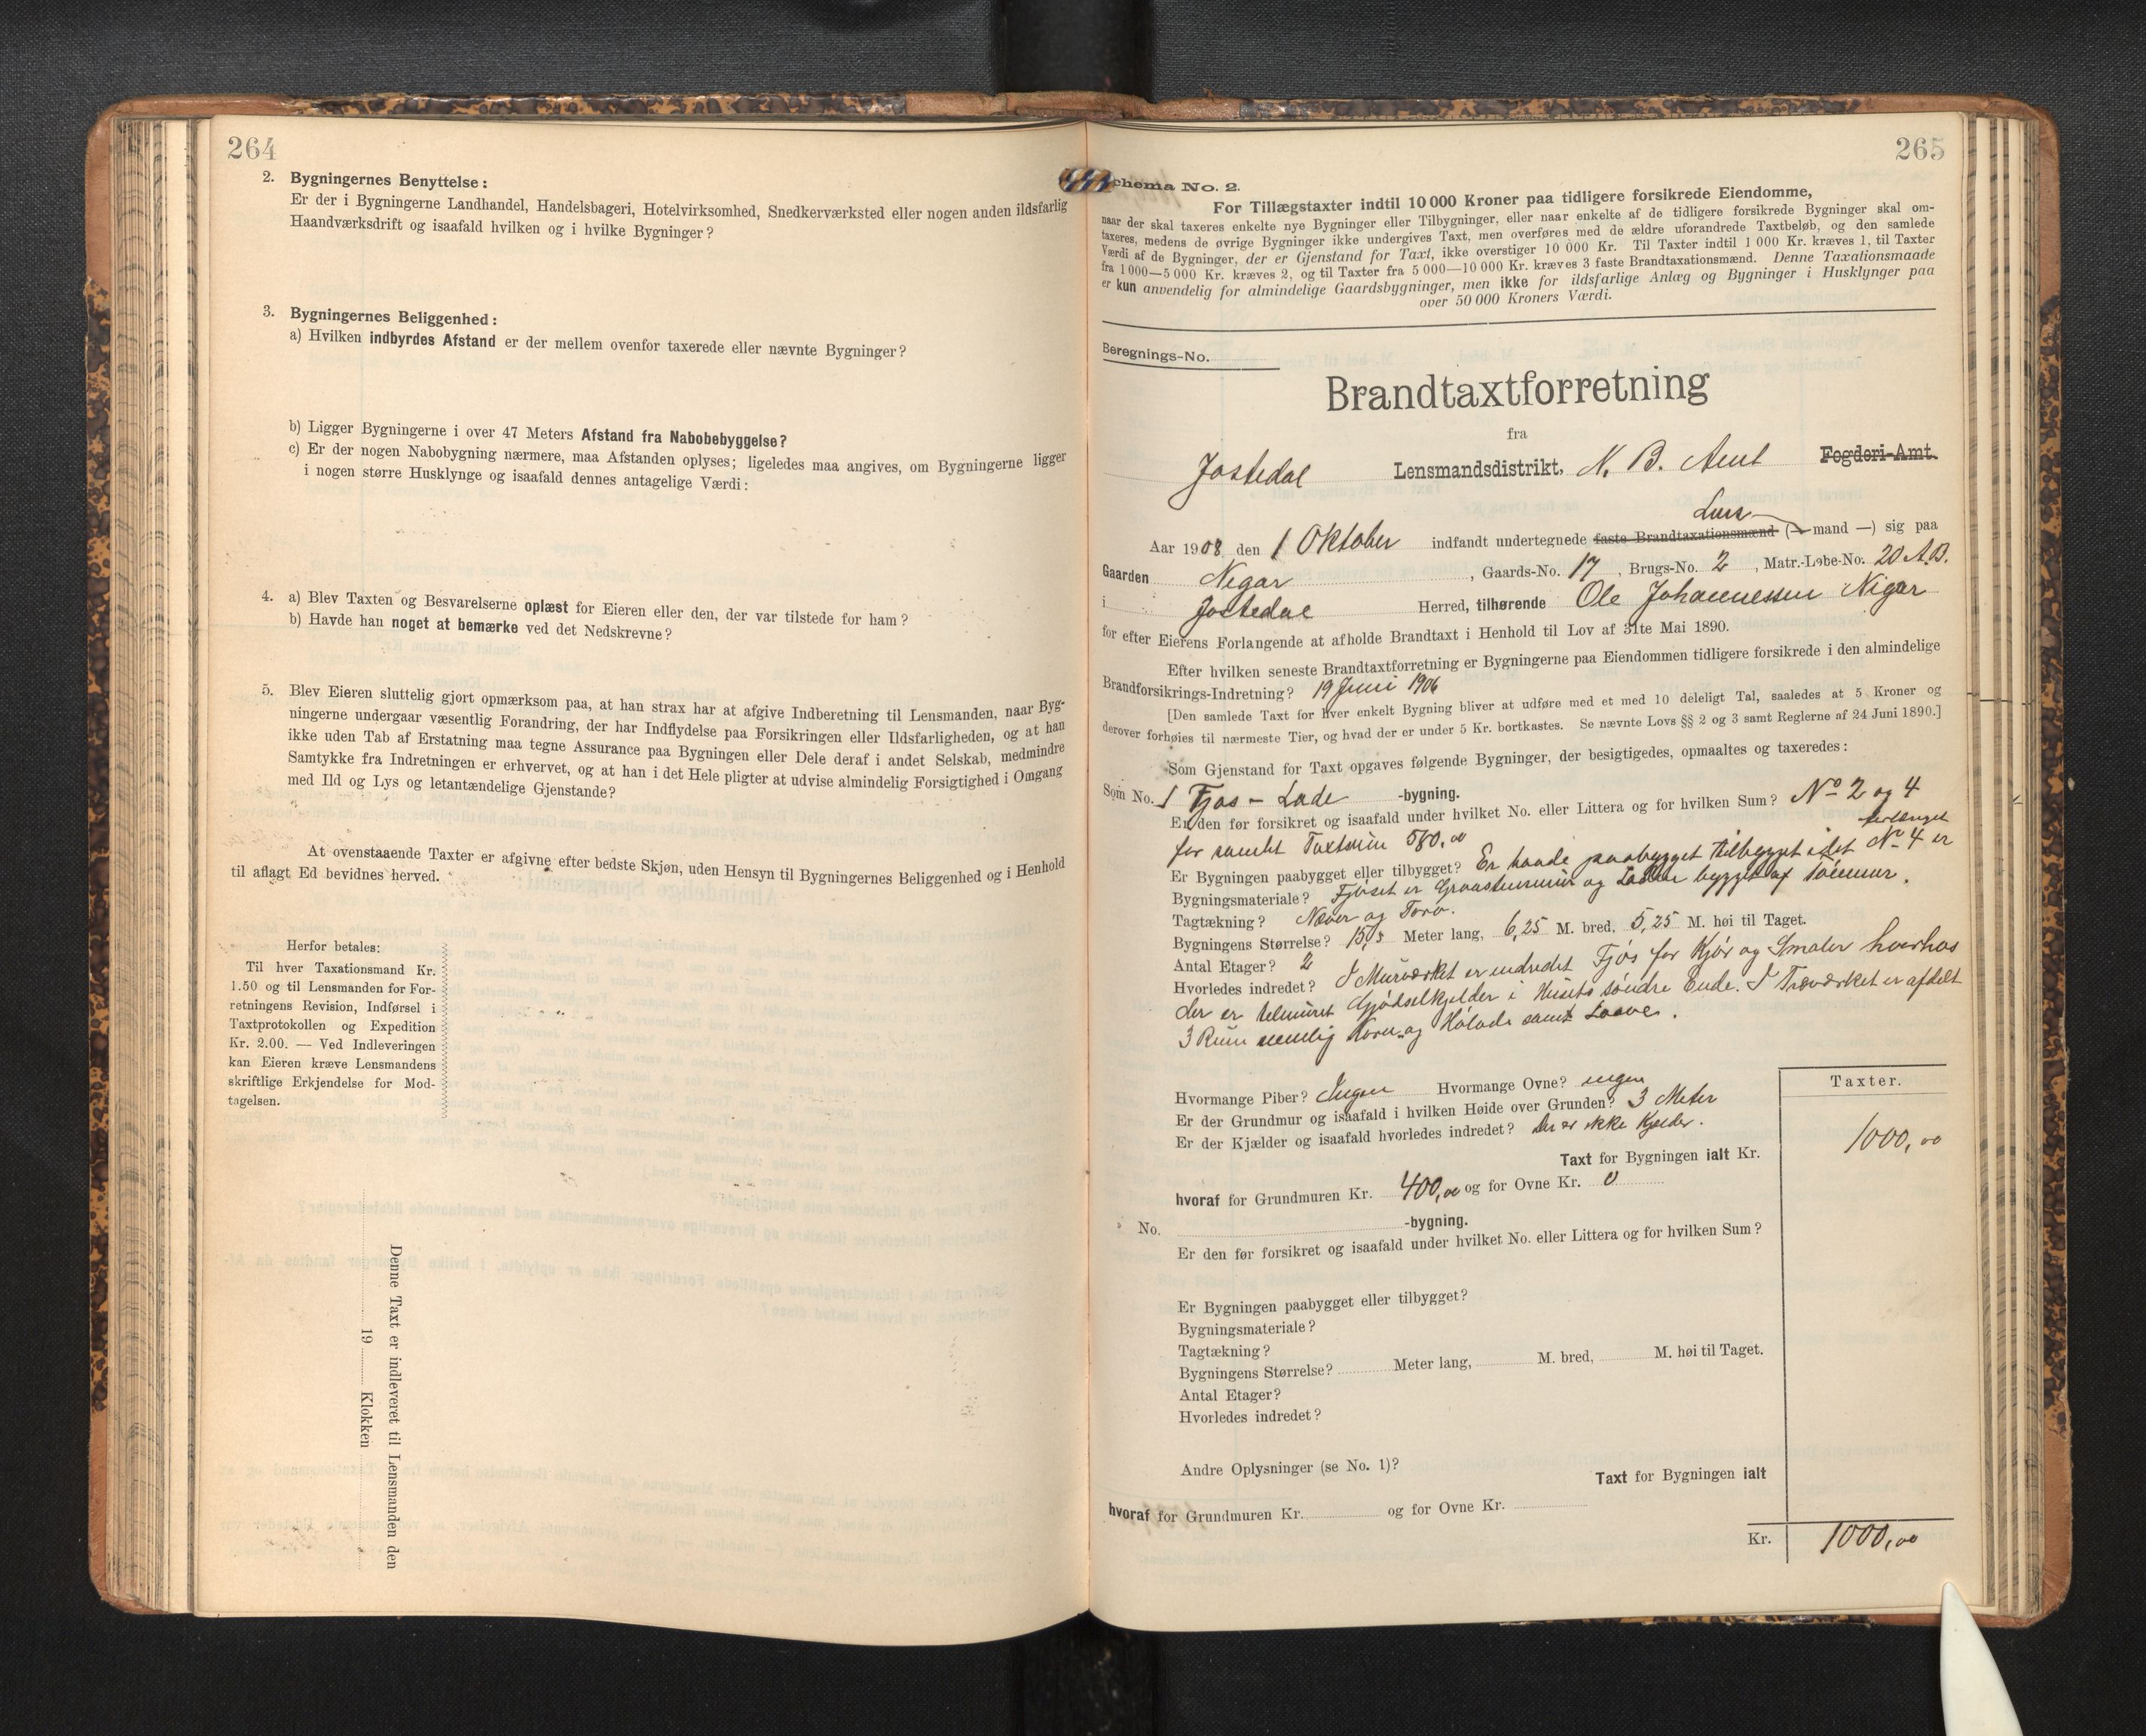 264
2. Bygningernes Benyttelse:
Er der i Bygningerne Landhandel, Handelsbageri, Hotelvirksomhed, Snedkerværksted eller nogen anden ildsfarlig
Haandværksdrift og isaafald hvilken og i hvilke Bygninger?
3. Bygningernes Beliggenhed:
a) Hvilken indbyrdes Afstand er der mellem ovenfor taxerede eller nævnte Bygninger?
b) Ligger Bygningerne i over 47 Meters Afstand fra Nabobebyggelse?
c) Er der nogen Nabobygning nærmere, maa Afstanden oplyses; ligeledes maa angives, om Bygningerne ligger
i nogen større Husklynge og isaafald dennes antagelige Værdi:
4. a) Blev Taxten og Besvarelserne oplæst for Eieren eller den, der var tilstede for ham?
b) Havde han noget at bemærke ved det Nedskrevne?
5. Blev Eieren sluttelig gjort opmærksom paa, at han strax har at afgive Indberetning til Lensmanden, naar Byg-
ningerne undergaar væsentlig Forandring, der har Indflydelse paa Forsikringen eller Ildsfarligheden, og at han
ikke uden Tab af Erstatning maa tegne Assurance paa Bygningen eller Dele deraf i andet Selskab, medmindre
Samtykke fra Indretningen er erhvervet, og at han i det Hele pligter at udvise almindelig Forsigtighed i Omgang
med Ild og Lys og letantændelige Gjenstande?
At ovenstaaende Taxter er afgivne efter bedste Skjøn, uden Hensyn til Bygningernes Beliggenhed og i Henhold
til aflagt Ed bevidnes herved.
Herfor betales:
Til hver Taxationsmand Kr.
1.50 og til Lensmanden for For-
retningens Revision, Indførsel i
Taxtprotokollen og Expedition
Kr. 2.00. — Ved Indleveringen
kan Eieren kræve Lensmandens
skriftlige Erkjendelse for Mod-
tagelsen.
Denne Taxt er indleveret til Lensmanden den
19 Klokken
265
chema No. 2.
For Tillægstaxter indtil 10 000 Kroner paa tidligere forsikrede Eiendomme,
naar der skal taxeres enkelte nye Bygninger eller Tilbygninger, eller naar enkelte af de tidligere forsikrede Bygninger skal om-
taxeres, medens de øvrige Bygninger ikke undergives Taxt, men overføres med de ældre uforandrede Taxtbeløb, og den samlede
Værdi af de Bygninger, der er Gjenstand for Taxt, ikke overstiger 10 000 Kr. Til Taxter indtil 1 000 Kr. kræves 1, til Taxter
fra 1 000—5 000 Kr. kræves 2, og til Taxter fra 5 000—10 000 Kr. kræves 3 faste Brandtaxationsmænd. Denne Taxationsmaade
er kun anvendelig for almindelige Gaardsbygninger, men ikke for ildsfarlige Anlæg og Bygninger i Husklynger paa
over 50 000 Kroners Værdi.
Beregnings-No.
Brandtaxtforretning
fra
Jostedal Lensmandsdistrikt, N. B. Amt Fogderi-Amt.
Lens
Aar 1908 den 1 Oktober indfandt undertegnede faste Brandtaxationsmænd (— mand —) sig paa
Gaarden Nigar, Gaards-No. 17, Brugs-No. 2, Matr.-Løbe-No. 20 A.B.
i Jostedal Herred, tilhørende Ole Johannessen Nigar
for efter Eierens Forlangende at afholde Brandtaxt i Henhold til Lov af 31te Mai 1890.
Efter hvilken seneste Brandtaxtforretning er Bygningerne paa Eiendommen tidligere forsikrede i den almindelige
Brandforsikrings-Indretning? 19 Juni 1906
[Den samlede Taxt for hver enkelt Bygning bliver at udføre med et med 10 deleligt Tal, saaledes at 5 Kroner og
derover forhøies til nærmeste Tier, og hvad der er under 5 Kr. bortkastes. Se nævnte Lovs §§ 2 og 3 samt Reglerne af 24 Juni 1890.]
Som Gjenstand for Taxt opgaves følgende Bygninger, der besigtigedes, opmaaltes og taxeredes:
Som No. 1 Fjøs - Lade -bygning.
Er den før forsikret og isaafald under hvilket No. eller Littera og for hvilken Sum? No 2 og 4
for samlet Taxtsum 580,00
forlænget
Er Bygningen paabygget eller tilbygget? Er baade paabygget tilbygget idet No 4 er
Bygningsmateriale? Fjøset er Graastensmur og Laden bygget af Tømmer.
Tagtækning? Næver og Torv.
Bygningens Størrelse? 15,5 Meter lang, 6,25 M. bred, 5,25 M. høi til Taget.
Antal Etager? 2
Hvorledes indredet? I Murværket er indredet Fjøs for Kjør og Smaler hvorhos
der er tilmuret Gjødselkjelder i Husets søndre Ende. I Træværket er afdelt
3 Rum nemlig Korn og Hølade samt Laave.
Hvormange Piber? Ingen Hvormange Ovne? ingen
Er der Grundmur og isaafald i hvilken Høide over Grunden? 3 Meter
Er der Kjælder og isaafald hvorledes indredet? Der er ikke Kjelder.
Taxter.
Taxt for Bygningen ialt Kr. 1000,00
hvoraf for Grundmuren Kr. 400,00 og for Ovne Kr. 0
No. -bygning.
Er den før forsikret og isaafald under hvilket No. eller Littera og for hvilken Sum?
Er Bygningen paabygget eller tilbygget?
Bygningsmateriale?
Tagtækning?
Bygningens Størrelse? Meter lang, M. bred, M. høi til Taget.
Antal Etager?
Hvorledes indredet?
Andre Oplysninger (se No. 1)?
Taxt for Bygningen ialt
hvoraf for Grundmuren Kr. og for Ovne Kr.
Kr. 1000,00